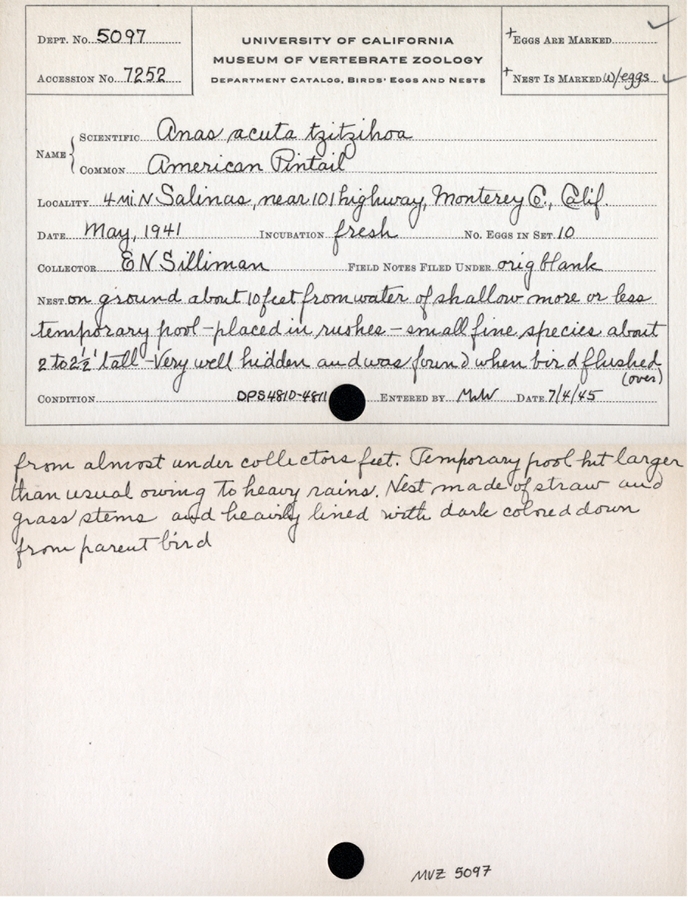 Dept. No. 5097
Accession No. 7252
UNIVERSITY OF CALIFORNIA
MUSEUM OF VERTEBRATE ZOOLOGY
Department Catalog, Birds' Eggs and Nests
+Eggs Are Marked
+Nest Is Marked w/eggs
Name
Scientific Anas acuta tzitzihoa
Common American Pintail
Locality 4 mi. N Salinas, near 101 highway, Monterey Co., Calif.
Date May, 1941 Incubation fresh No. Eggs in Set 10
Collector E N Silliman Field Notes Filed Under orig blank
Nest on ground about 10 feet from water of shallow more or less
temporary pool - placed in rushes - small fine species about
2 to 2½' tall - Very well hidden and was found when bird flushed
(over)
Condition DPS 4810-4811 Entered by MWW Date 7/4/45
from almost under collectors feet. Temporary pool but larger
than usual owing to heavy rains. Nest made of straw and
grass stems and heavily lined with dark colored down
from parent bird
MVZ 5097